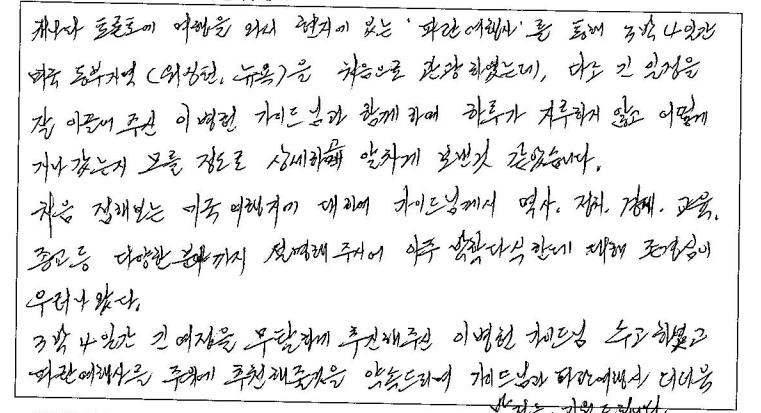 캐나다 토론토에 여행을 와서 현지에 있는 '파란여행사'를 통해 3박 4일간
미국 동부지역 (워싱턴, 뉴욕)을 처음으로 관광하였는데, 다소 긴 일정을
잘 이끌어 주신 이병헌 가이드님과 함께하여 하루가 지루하지 않고 어떻게
지나갔는지 모를 정도로 상세하고 알차게 보낸것 같았습니다.
처음 접해보는 미국 여행지에 대하여 가이드님께서 역사. 정치. 경제. 교육.
종교등 다양한 분야까지 설명해 주시어 아주 박학다식한데 대해 존경심이
우러나왔다.
3박 4일간 긴 여정을 무탈하게 추진해주신 이병헌 가이드님 수고하셨고
파란여행사를 주위에 추천해줄것을 약속드리며 가이드님과 파란여행사 더더욱
기원드립니다.